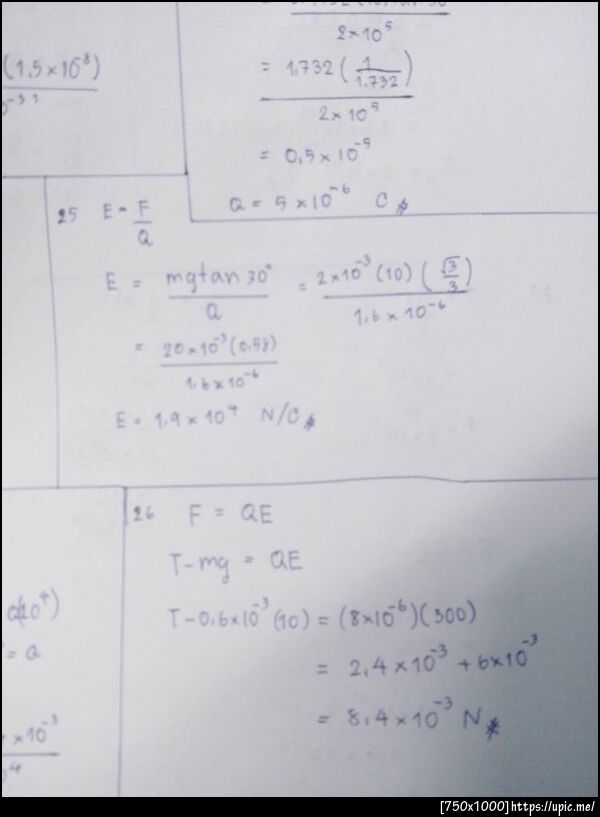 2×10⁵
(1.5×10⁻⁸)
= 1.732 (1/1.732)
2×10⁵
= 0.5×10⁻⁵
Q = 5×10⁻⁶ C
25 E = F/Q
E = mgtan30°/Q = 2×10⁻³(10)(√3/3)/1.6×10⁻⁶
= 20×10⁻³(0.58)/1.6×10⁻⁶
E = 1.9×10⁴ N/C
26 F = QE
T-mg = QE
T-0.6×10⁻³(10) = (8×10⁻⁶)(300)
= a
= 2.4×10⁻³ + 6×10⁻³
×10⁻³
= 8.4×10⁻³ N
[750x1000]https://upic.me/